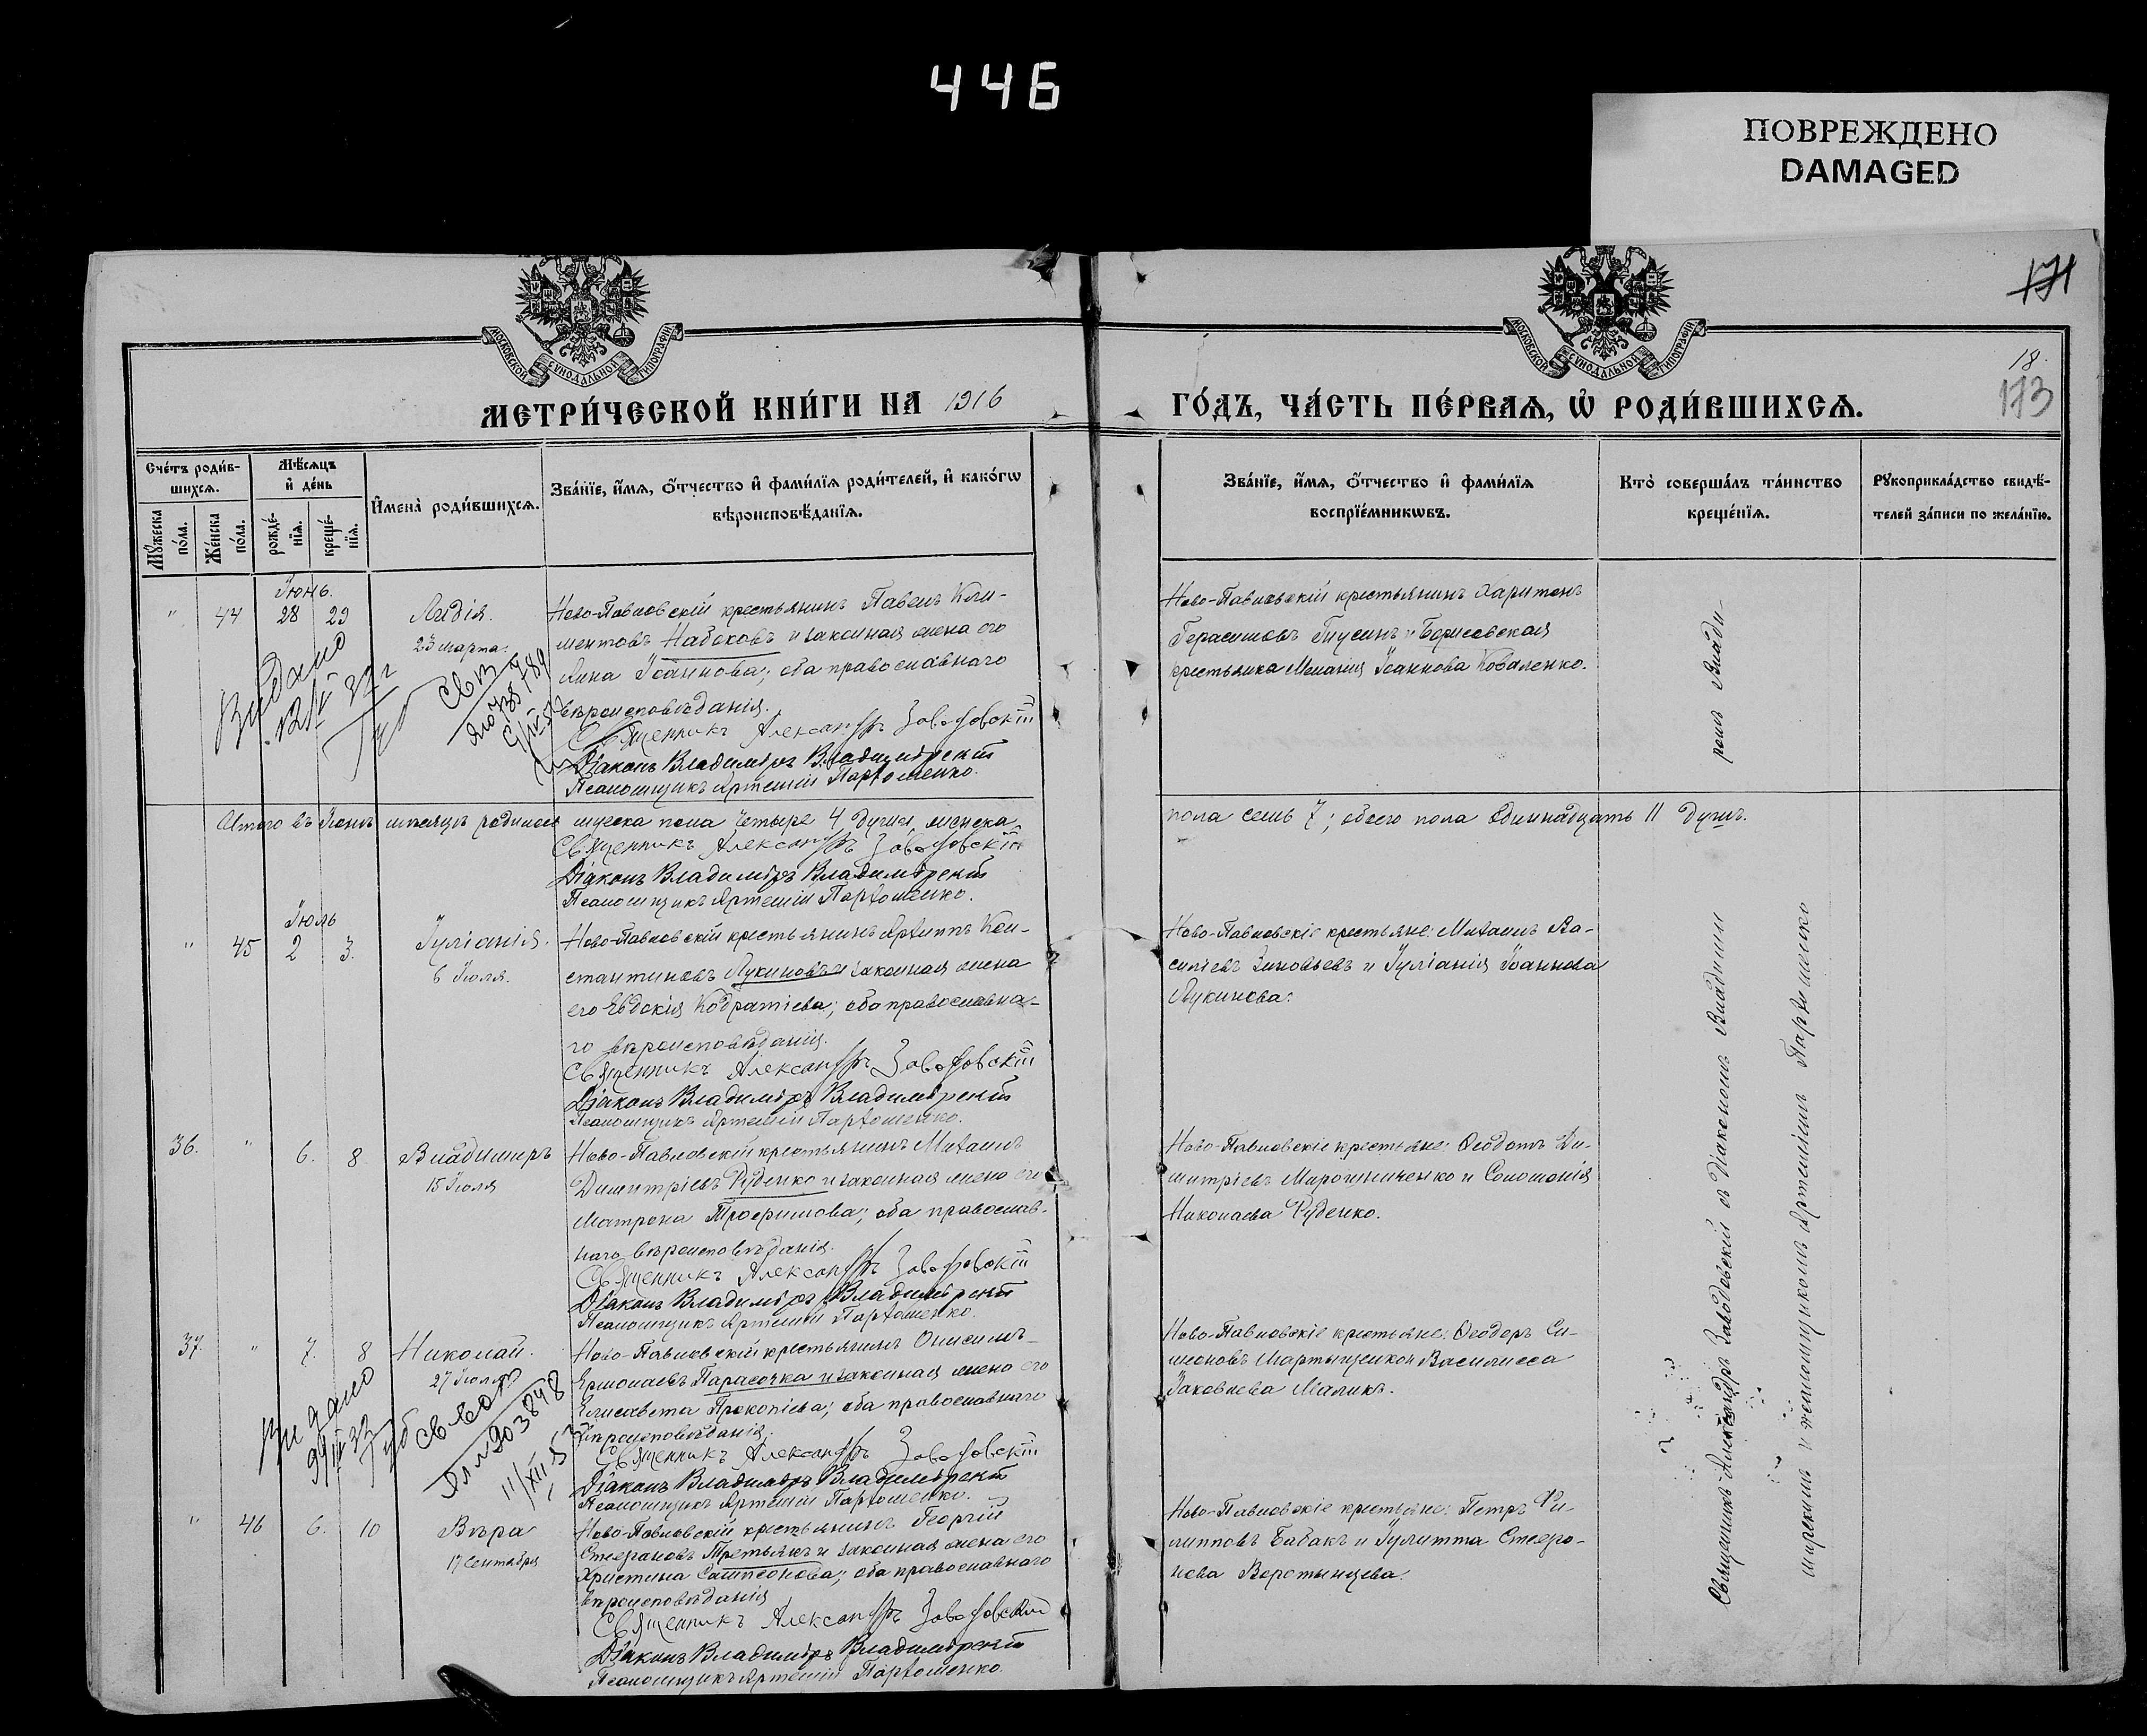 446
ПОВРЕЖДЕНО
DAMAGED
171
18.
173
МОСКОВСКОЙ СУНОДАЛЬНОЙ ТИПОГРАФІИ
МОСКОВСКОЙ СУНОДАЛЬНОЙ ТИПОГРАФІИ
МЕТРИ́ЧЕСКОЙ КНИ́ГИ НА 1916
ГО́ДЪ, ЧА́СТЬ ПЕ́РВАѦ, Ѡ҆ РОДИ́ВШИХСѦ.
Сче́тъ роди́в-
шихсѧ.
Мꙋ́жеска по́ла.
Же́нска по́ла.
Мѣ́сѧцъ
и҆ де́нь
рожде́-
нїѧ.
креще́-
нїѧ.
И҆мена̀ роди́вшихсѧ.
Зва́нїе, и҆́мѧ, ѻ҆́тчество и҆ фами́лїѧ роди́телей, и҆ како́гѡ
вѣроисповѣ́данїѧ.
Зва́нїе, и҆́мѧ, ѻ҆́тчество и҆ фами́лїѧ
воспрїе́мникѡвъ.
Кто̀ соверша́лъ та́инство
креще́нїѧ.
Рꙋкоприкла́дство свидѣ́-
телей за́писи по жела́нїю.
Іюнь.
" 44 28 29 Лидія.
23 марта.
Ново-Павловскій крестьянинъ Павелъ Кли-
ментовъ Набоковъ и законная жена его
Анна Іоаннова; оба православнаго
вѣроисповѣданія.
Священникъ Александръ Заводовскій
Діаконъ Владиміръ Владимірскій
Псаломщикъ Артемій Пархоменко.
Ново-Павловскій крестьянинъ Харитонъ
Герасимовъ Гнусинъ и Борисовская
крестьянка Меланія Іоаннова Коваленко.
Видано
Итого въ Іюнѣ мѣсяцѣ родилось мужска пола четыре 4 души, женска
пола семь 7; обоего пола одиннадцать 11 душъ.
Священникъ Александръ Заводовскій
Діаконъ Владиміръ Владимірскій
Псаломщикъ Артемій Пархоменко.
Іюль
" 45 2 3. Іуліанія.
6 Іюля.
Ново-Павловскій крестьянинъ Архиппъ Кон-
стантиновъ Лукиновъ и законная жена
его Евдокія Кодратіева; оба православна-
го вѣроисповѣданія.
Священникъ Александръ Заводовскій
Діаконъ Владиміръ Владимірскій
Псаломщикъ Артемій Пархоменко.
Ново-Павловскіе крестьяне: Михаилъ Ва-
силіевъ Зиновьевъ и Іуліанія Іоаннова
Лукинова.
36. " 6. 8. Владимиръ
15 Іюля
Ново-Павловскій крестьянинъ Михаилъ
Димитріевъ Руденко и законная жена его
Матрона Трофимова; оба православ-
наго вѣроисповѣданія.
Священникъ Александръ Заводовскій
Діаконъ Владиміръ Владимірскій
Псаломщикъ Артемій Пархоменко.
Ново-Павловскіе крестьяне: Ѳеодотъ Ди-
митріевъ Мирошниченко и Соломонія
Николаева Руденко.
37. " 7. 8 Николай.
27 Іюля
Ново-Павловскій крестьянинъ Онисимъ
Ермолаевъ Парасочка и законная жена его
Елисавета Прокопіева; оба православнаго
вѣроисповѣданія.
Священникъ Александръ Заводовскій
Діаконъ Владиміръ Владимірскій
Псаломщикъ Артемій Пархоменко.
Ново-Павловскіе крестьяне: Ѳеодоръ Си-
меоновъ Мартыщенко и Василисса
Іаковлева Маликъ.
Видано
" 46 6. 10 Вѣра
17 Сентября
Ново-Павловскій крестьянинъ Георгій
Стефановъ Третьякъ и законная жена его
Христина Сампсонова; оба православнаго
вѣроисповѣданія
Священникъ Александръ Заводовскій
Діаконъ Владиміръ Владимірскій
Псаломщикъ Артемій Пархоменко.
Ново-Павловскіе крестьяне: Петръ Фи-
липповъ Бабакъ и Іулитта Стефа-
нова Воротынцева.
Священникъ Александръ Заводовскій съ Діакономъ Владими-
ромъ Влади-
мірскимъ и псаломщикомъ Артеміемъ Пархоменко